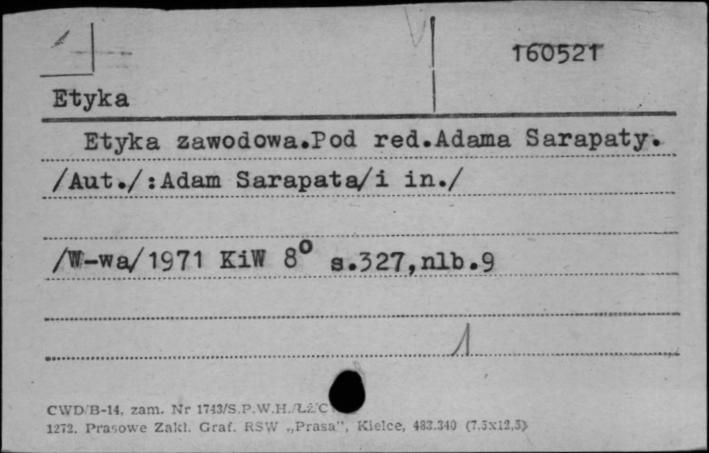 160521
Etyka
Etyka zawodowa.Pod red.Adama Sarapaty.
/Aut./:Adam Sarapata/i in./
/W-wa/1971 KiW 8° s.327,nlb.9
1
CWD/B-14, zam. Nr 1743/S.P.W.H./LŻ/C
1272. Prasowe Zakł. Graf. RSW „Prasa", Kielce, 483.340 (7.5x12,5)